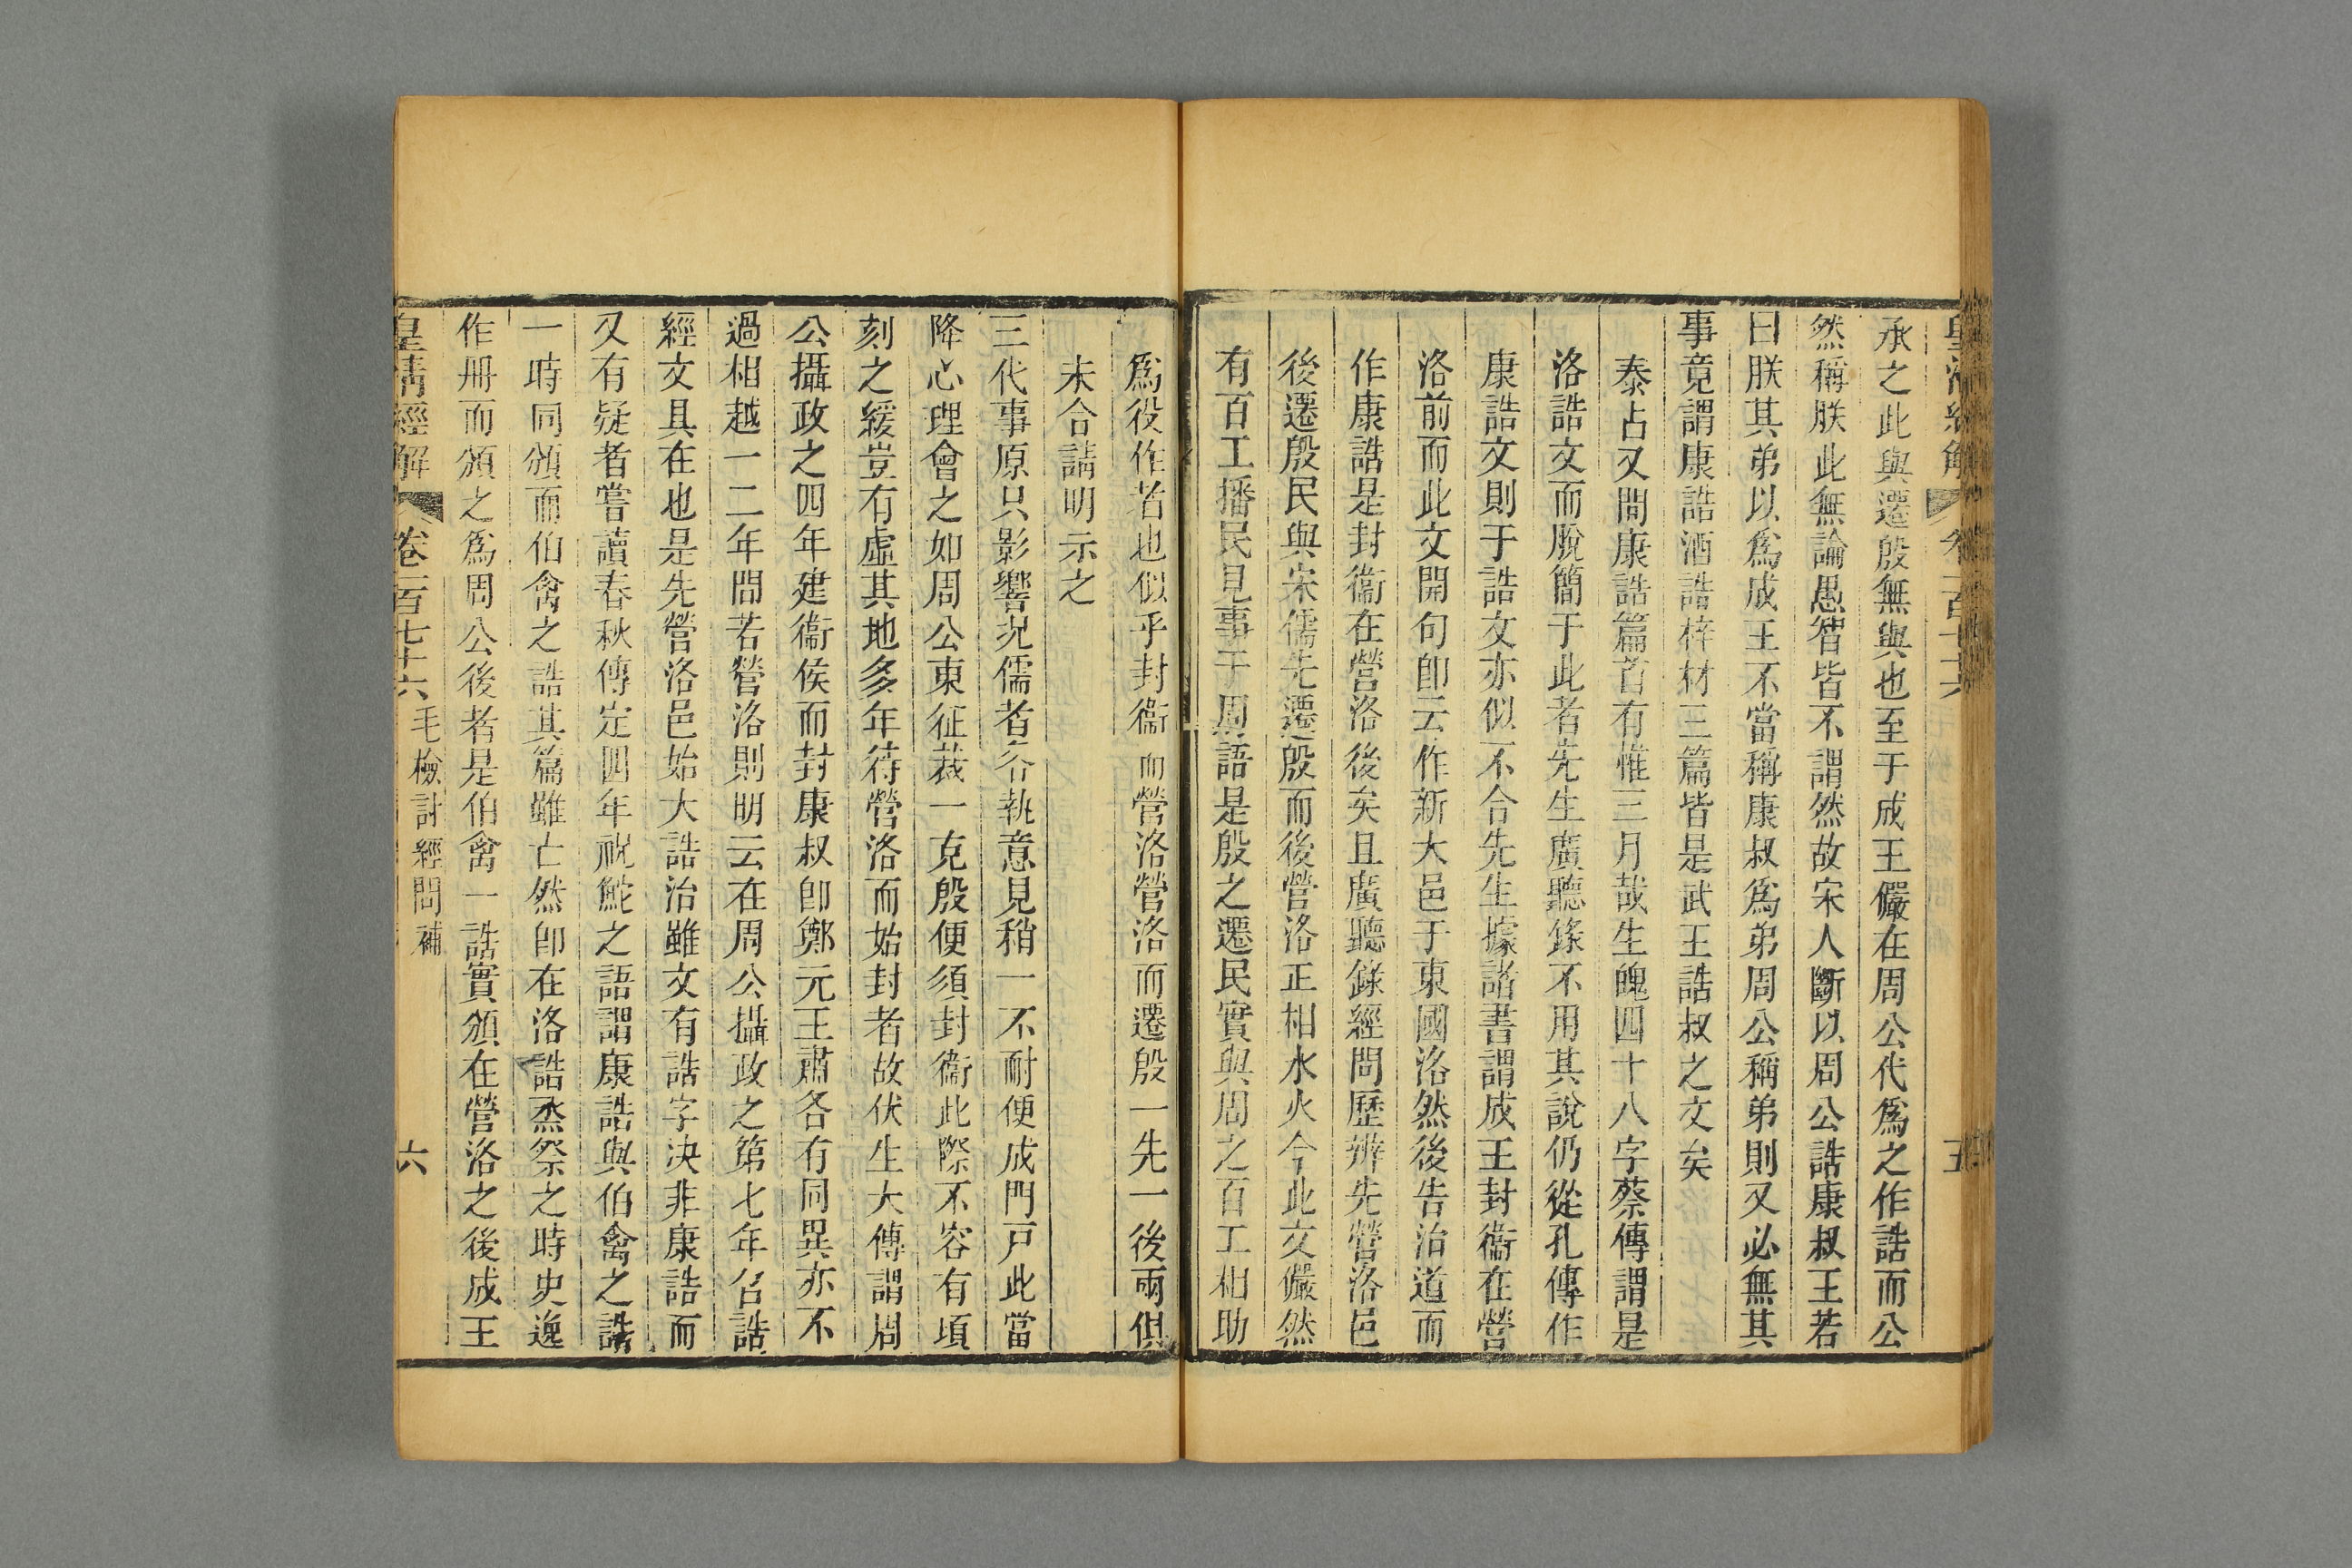 皇清經解 卷一百七十六 五
承之此與遷殷無與也至于成王儼在周公代爲之作誥而公
然稱朕此無論愚智皆不謂然故宋人斷以周公誥康叔王若
曰朕其弟以爲成王不當稱康叔爲弟周公稱弟則又必無其
事竟謂康誥酒誥梓材三篇皆是武王誥叔之文矣
泰占又問康誥篇首有惟三月哉生魄四十八字蔡傳謂是
洛誥文而脫簡于此者先生廣聽錄不用其說仍從孔傳作
康誥文則于誥文亦似不合先生據諸書謂成王封衞在營
洛前而此文開句卽云作新大邑于東國洛然後告治道而
作康誥是封衞在營洛後矣且廣聽錄經問歷辨先營洛邑
後遷殷民與宋儒先遷殷而後營洛正相水火今此文儼然
有百工播民見事于周語是殷之遷民實與周之百工相助
爲役作者也似乎封衞而營洛營洛而遷殷一先一後兩俱
未合請明示之
三代事原只影響況儒者各執意見稍一不耐便成門戸此當
降心理會之如周公東征裁一克殷便須封衞此際不容有頃
刻之緩豈有虛其地多年待營洛而始封者故伏生大傳謂周
公攝政之四年建衞侯而封康叔卽鄭元王肅各有同異亦不
過相越一二年間若營洛則明云在周公攝政之第七年召誥
經文具在也是先營洛邑始大誥治雖文有誥字決非康誥而
又有疑者嘗讀春秋傳定四年祝鮀之語謂康誥與伯禽之誥
一時同頒而伯禽之誥其篇雖亡然卽在洛誥烝祭之時史逸
作冊而頒之爲周公後者是伯禽一誥實頒在營洛之後成王
皇清經解 卷一百七十六 毛檢討經問補 六